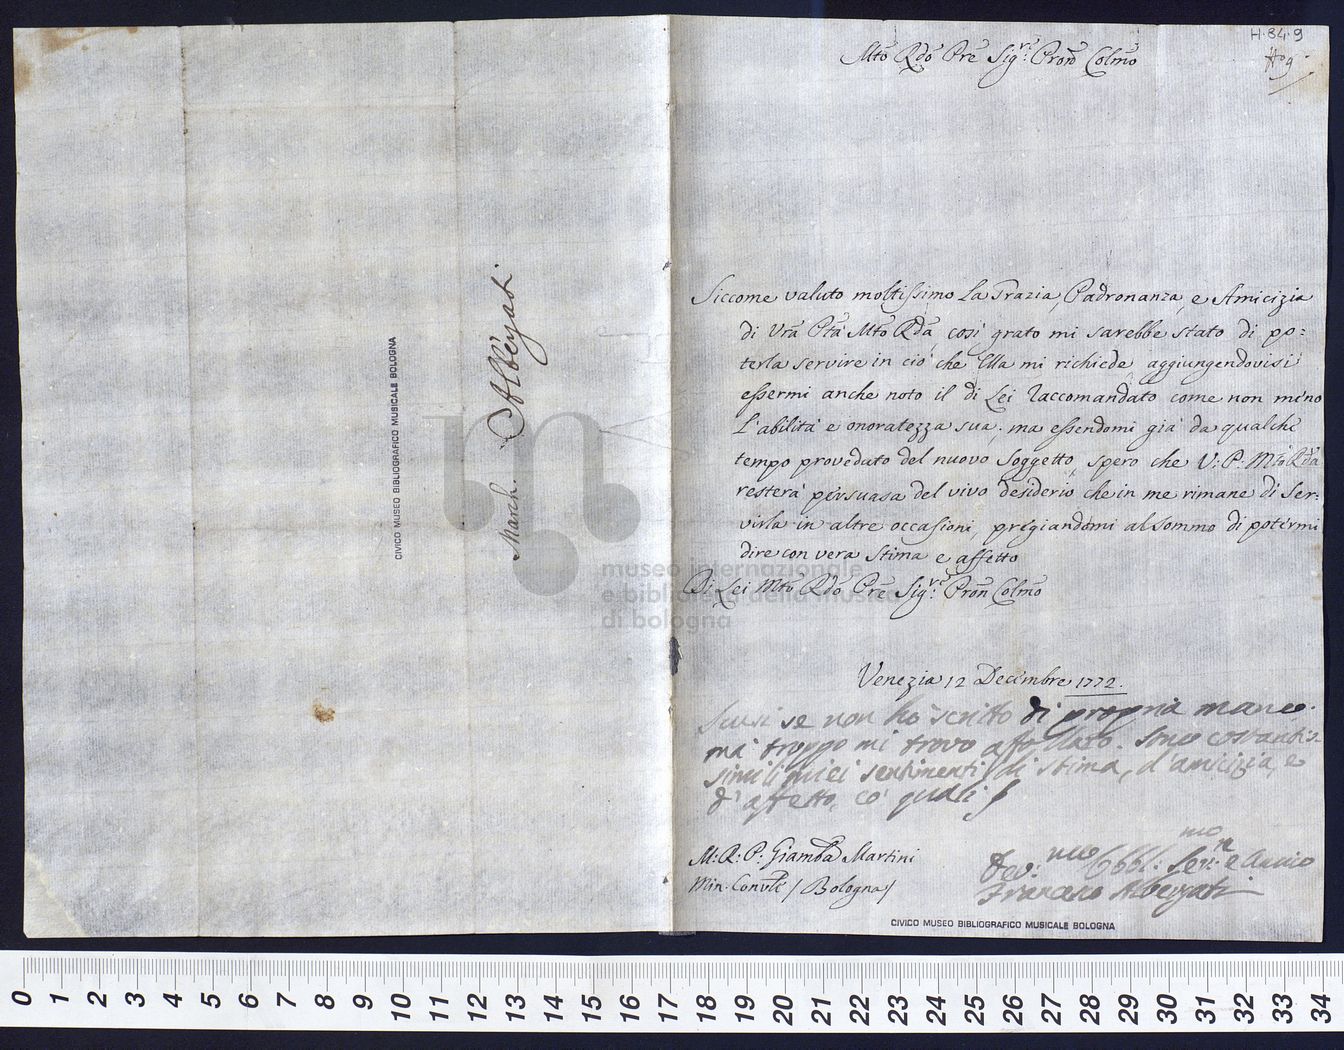 H.84.9
Mto Rdo Pre Sigr: Pron Colmo
Siccome valuto moltissimo La Grazia, Padronanza, e Amicizia
di Vra Pta Mto Rda, così grato mi sarebbe stato di po:
terla servire in ciò che Ella mi richiede, aggiungendovisi
essermi anche noto il di Lei Raccomandato come non meno
L'abilità e onoratezza sua; ma essendomi già da qualche
tempo provedato del nuovo Soggetto, spero che V: P: Mto Rda
resterà persuasa del vivo desiderio che in me rimane di Ser:
virla in altre occasioni, pregiandomi al sommo di potermi
dire con vera Stima e affetto
Di Lei Mto Rdo Pre Sigr: Pron Colmo
Venezia 12 Decembre 1772.
Scusi se non ho scritto di propria mano.
ma troppo mi trovo affollato. Sono costantis-
simi li miei sentimenti di stima, d'amicizia, e
d'affetto, co' quali
M: R: P: Giamba Martini
Min: Convle / Bologna /
Devmo: Obblmo: Serre: e Amico
Francesco Albergati
CIVICO MUSEO BIBLIOGRAFICO MUSICALE BOLOGNA
March. Albergati
CIVICO MUSEO BIBLIOGRAFICO MUSICALE BOLOGNA
museo internazionale
e biblioteca della musica
di bologna
0 1 2 3 4 5 6 7 8 9 10 11 12 13 14 15 16 17 18 19 20 21 22 23 24 25 26 27 28 29 30 31 32 33 34